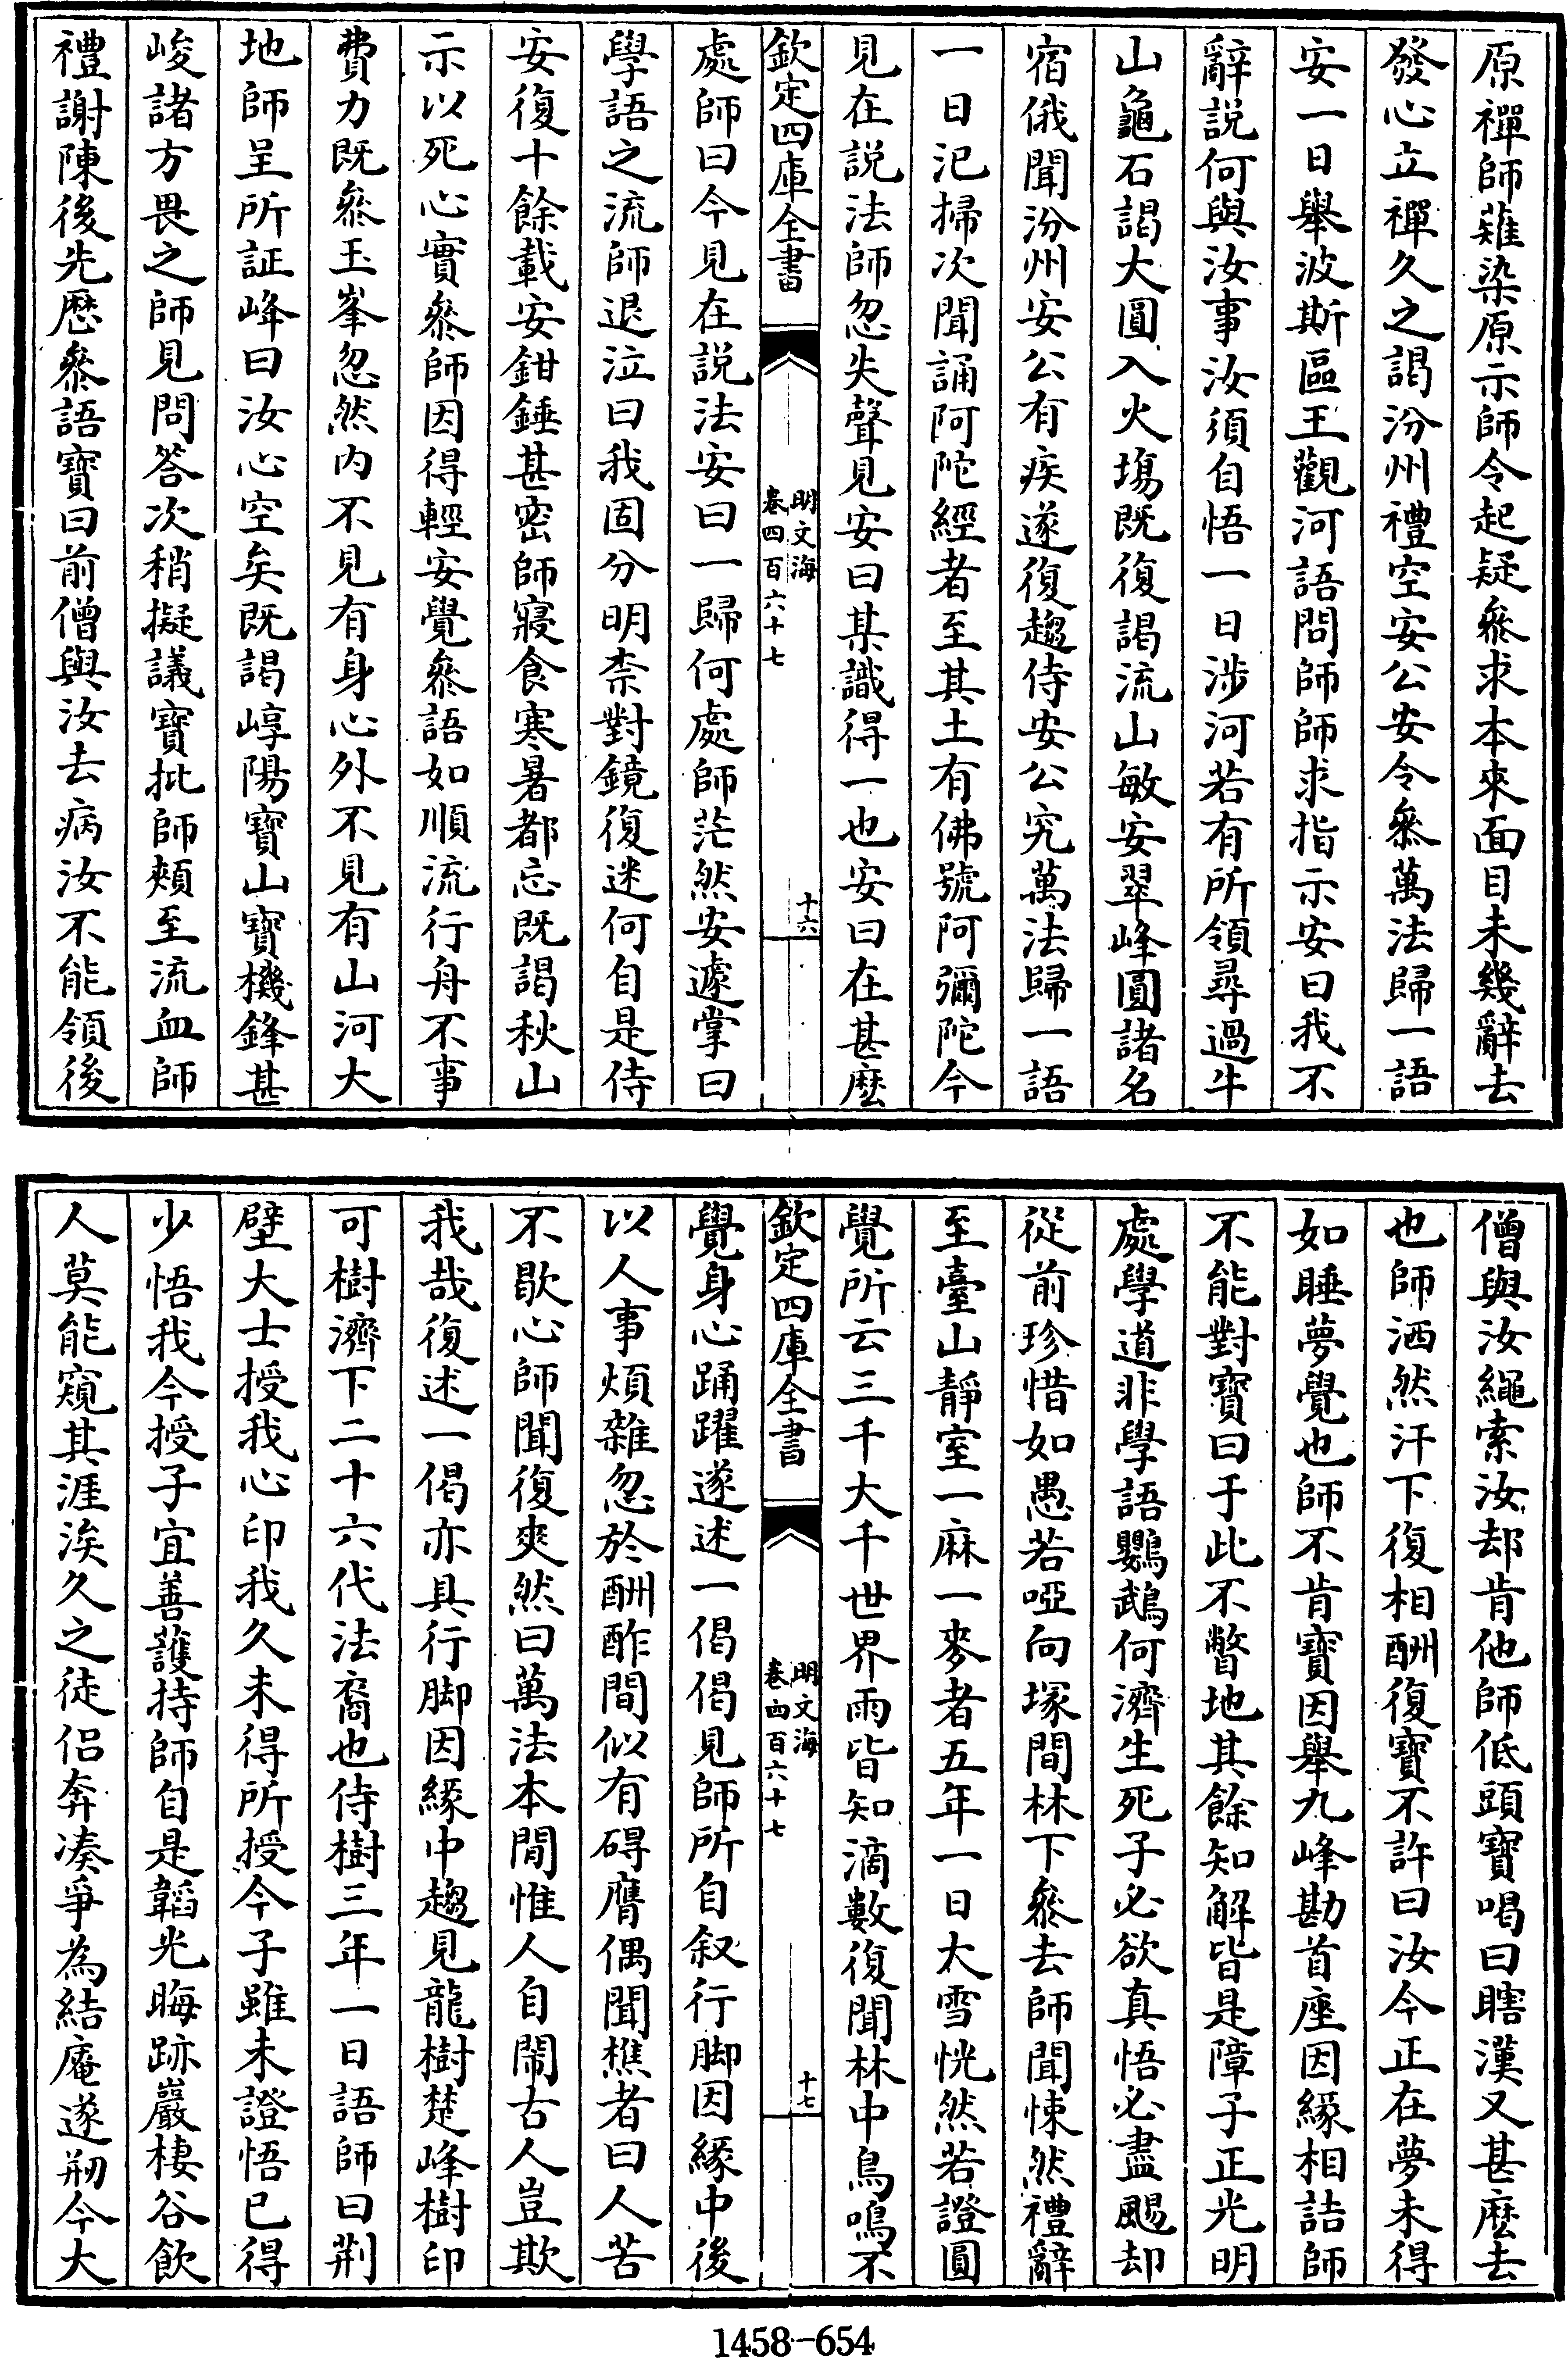 原禪師薙染原示師令起疑叅求本來面目未幾辭去
發心立禪久之謁汾州禮空安公安令叅萬法歸一語
安一日舉波斯匿王觀河語問師師求指示安曰我不
辭説何與汝事汝須自悟一日涉河若有所領尋過牛
山龜石謁大圓入火塲既復謁流山敏安翠峰圓諸名
宿俄聞汾州安公有疾遂復趨侍安公究萬法歸一語
一日汜掃次聞誦阿陀經者至其土有佛號阿彌陀今
見在説法師忽失聲見安曰某識得一也安曰在甚麽
欽定四庫全書
明文海
卷四百六十七
十六
處師曰今見在説法安曰一歸何處師茫然安遽掌曰
學語之流師退泣曰我固分明柰對鏡復迷何自是侍
安復十餘載安鉗錘甚密師寢食寒暑都忘既謁秋山
示以死心實叅師因得輕安覺叅語如順流行舟不事
費力既叅玉峯忽然内不見有身心外不見有山河大
地師呈所証峰曰汝心空矣既謁崞陽寳山寳機鋒甚
峻諸方畏之師見問答次稍擬議寳批師頰至流血師
禮謝陳後先歷叅語寳曰前僧與汝去病汝不能領後
僧與汝繩索汝却肯他師低頭寳喝曰瞎漢又甚麽去
也師洒然汗下復相酬復寳不許曰汝今正在夢未得
如睡夢覺也師不肯寳因舉九峰勘首座因緣相詰師
不能對寳曰于此不瞥地其餘知解皆是障子正光明
處學道非學語鸚鵡何濟生死子必欲真悟必盡颺却
從前珍惜如愚若啞向塜間林下叅去師聞悚然禮辭
至臺山靜室一麻一麥者五年一日大雪恍然若證圓
覺所云三千大千世界雨皆知滴數復聞林中鳥鳴不
欽定四庫全書
明文海
卷四百六十七
十七
覺身心踊躍遂述一偈偈見師所自叙行脚因緣中後
以人事煩雜忽於酬酢間似有碍膺偶聞樵者曰人苦
不歇心師聞復爽然曰萬法本閒惟人自鬧古人豈欺
我哉復述一偈亦具行脚因緣中趨見龍樹楚峰樹印
可樹濟下二十六代法裔也侍樹三年一日語師曰荆
壁大士授我心印我久未得所授今子雖未證悟已得
少悟我今授子宜善護持師自是韜光晦跡巖棲谷飲
人莫能窺其涯涘久之徒侣奔凑爭為結庵遂剏今大
1458-654